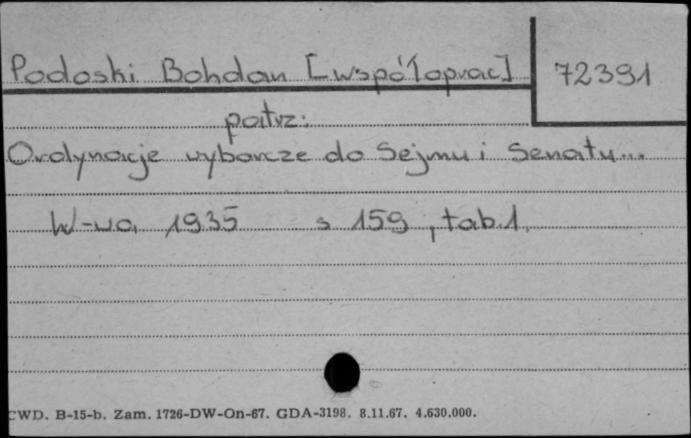 Podoski Bohdan [współoprac] 72391
patrz:
Ordynacje wyborcze do Sejmu i Senatu...
W-wa, 1935 s 159, tab.1.
CWD. B-15-b. Zam. 1726-DW-On-67. GDA-3198. 8.11.67. 4.630.000.